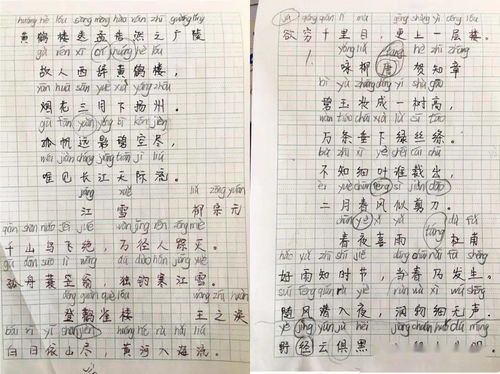 huáng hè lóu sòng mèng hào rán zhī guǎng líng
黄鹤楼送孟浩然之广陵
gù rén xī cí huáng hè lóu
故人西辞黄鹤楼，
yān huā sān yuè xià yáng zhōu
烟花三月下扬州。
gū fān yuǎn yǐng bì kōng jìn
孤帆远影碧空尽，
wéi jiàn cháng jiāng tiān jì liú
唯见长江天际流。
jiāng xuě liǔ zōng yuán
江雪 柳宗元
qiān shān niǎo fēi jué wàn jìng rén zōng miè
千山鸟飞绝，万径人踪灭。
gū zhōu suō lì wēng dú diào hán jiāng xuě
孤舟蓑笠翁，独钓寒江雪。
dēng guàn què lóu wáng zhī huàn
登鹳雀楼 王之涣
bái rì yī shān jìn huáng hé rù hǎi liú
白日依山尽，黄河入海流。
yù qióng qiān lǐ mù gèng shàng yì céng lóu
欲穷千里目，更上一层楼。
yǒng liǔ táng hè zhī zhāng
咏柳 唐 贺知章
bì yù zhuāng chéng yí shù gāo
碧玉妆成一树高，
wàn tiáo chuí xià lǜ sī tāo
万条垂下绿丝绦。
bù zhī xì yè shéi cái chū
不知细叶谁裁出，
èr yuè chūn fēng sì jiǎn dāo
二月春风似剪刀。
chūn yè xǐ yǔ táng dù fǔ
春夜喜雨 杜甫
hǎo yǔ zhī shí jié dāng chūn nǎi fā shēng
好雨知时节，当春乃发生。
suí fēng qián rù yè rùn wù xì wú shēng
随风潜入夜，润物细无声。
yě jìng yún jù hēi
野径云俱黑